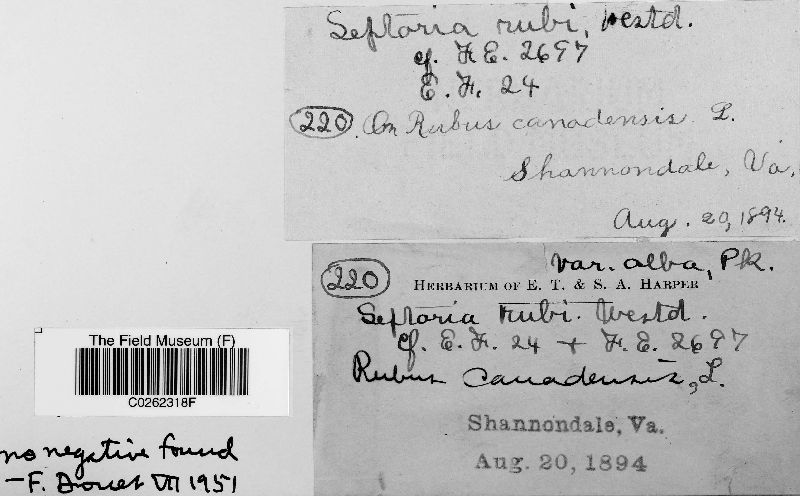 Septoria rubi, Westd.
cf. F.E. 2697
E. F. 24
220. On Rubus canadensis L.
Shannondale, Va.
Aug. 20, 1894.
var. alba, Pk.
220
HERBARIUM OF E. T. & S. A. HARPER
Septoria rubi. Westd.
cf. E. F. 24 + F. E. 2697
Rubus canadensis, L.
Shannondale, Va.
Aug. 20, 1894
The Field Museum (F)
C0262318F
no negative found
—F. Drouet VII 1951